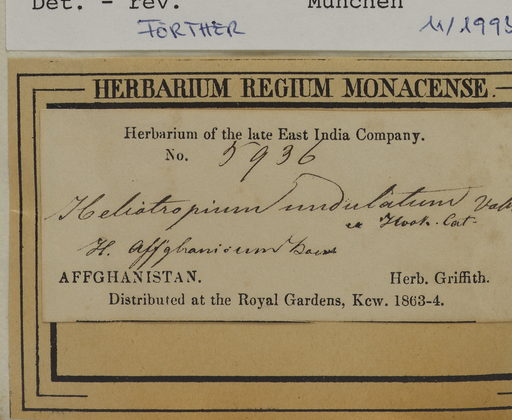 Det. - rev. München
FÖRTHER 11/1993
HERBARIUM REGIUM MONACENSE.
Herbarium of the late East India Company.
No. 5936
Heliotropium undulatum Vahl
ex Hook. Cat.
H. Affghanicum Boiss
AFFGHANISTAN. Herb. Griffith.
Distributed at the Royal Gardens, Kew. 1863-4.